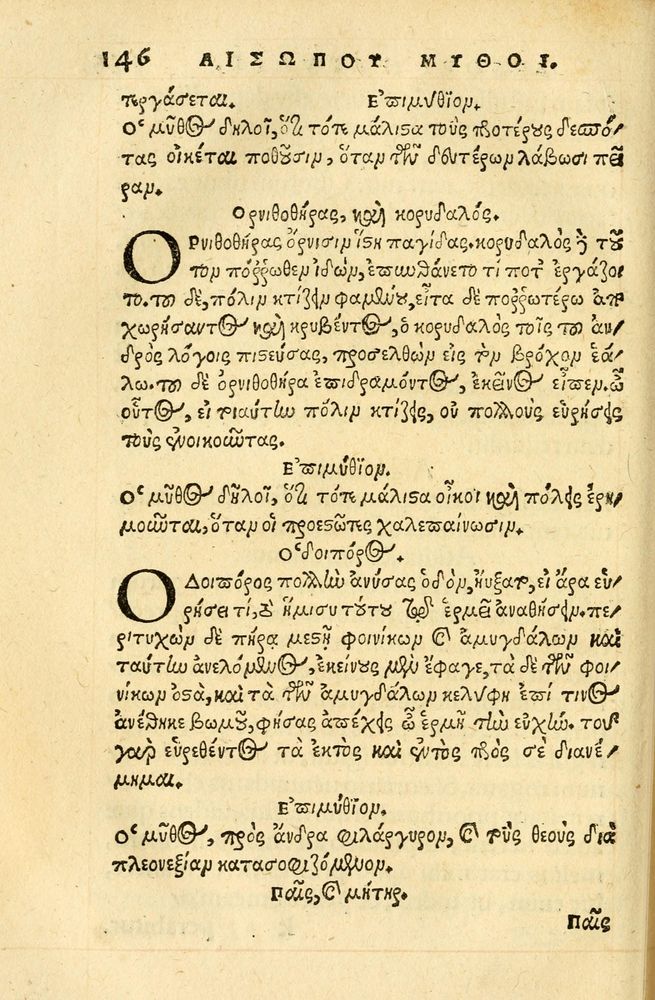 146 ΑΙΣΩΠΟΥ ΜΥΘΟΙ.
περγάσεται. Ἐπιμύθιον.
Ὁ μῦθος δηλοῖ, ὅτι τότε μάλιστα τοὺς προτέρους δεσπό-
τας οἰκέται ποθοῦσιν, ὅταν τῶν δευτέρων λάβωσι πεῖ
ραν.
Ὀρνιθοθήρας, καὶ κορυδαλός.
ΟΡνιθοθήρας ὄρνισιν ἵστη παγίδας. κορυδαλὸς δὲ τοῦ
τον πόῤῥωθεν ἰδὼν, ἐπυνθάνετο τί ποτ' ἐργάζοι
το. τοῦ δὲ, πόλιν κτίζειν φαμένου, εἶτα δὲ ποῤῥωτέρω ἀπο
χωρήσαντος καὶ κρυβέντος, ὁ κορυδαλὸς τοῖς τοῦ ἀν-
δρὸς λόγοις πιστεύσας, προσελθὼν εἰς τὸν βρόχον ἑά-
λω. τοῦ δὲ ὀρνιθοθήρα ἐπιδραμόντος, ἐκεῖνος εἶπεν. ὦ
οὗτος, εἰ τοιαύτην πόλιν κτίζεις, οὐ πολλοὺς εὑρήσεις
τοὺς ἐνοικοῦντας.
Ἐπιμύθιον.
Ὁ μῦθος δηλοῖ, ὅτι τότε μάλιστα οἶκοι καὶ πόλεις ἐρη-
μοῦνται, ὅταν οἱ προεστῶτες χαλεπαίνωσιν.
Ὁδοιπόρος.
ΟΔοιπόρος πολλὴν ἀνύσας ὁδὸν, ηὔξατο, εἰ ἄρα εὑ-
ρήσει τί, τὸ ἥμισυ τούτου τῷ ἑρμῇ ἀναθήσειν. πε-
ριτυχὼν δὲ πήρᾳ μεστῇ φοινίκων καὶ ἀμυγδάλων καὶ
ταύτην ἀνελόμενος, ἐκείνους μὲν ἔφαγε, τὰ δὲ τῶν φοι-
νίκων ὀστᾶ, καὶ τὰ τῶν ἀμυγδάλων κελύφη ἐπί τινος
ἀνέθηκε βωμοῦ, φήσας ἀπέχεις ὦ ἑρμῆ τὴν εὐχήν. τοῦ
γὰρ εὑρεθέντος τὰ ἐκτὸς καὶ ἐντὸς πρὸς σὲ διανέ-
μημαι.
Ἐπιμύθιον.
Ὁ μῦθος, πρὸς ἄνδρα φιλάργυρον, καὶ τοὺς θεοὺς διὰ
πλεονεξίαν κατασοφιζόμενον.
Παῖς, καὶ μήτηρ.
Παῖς